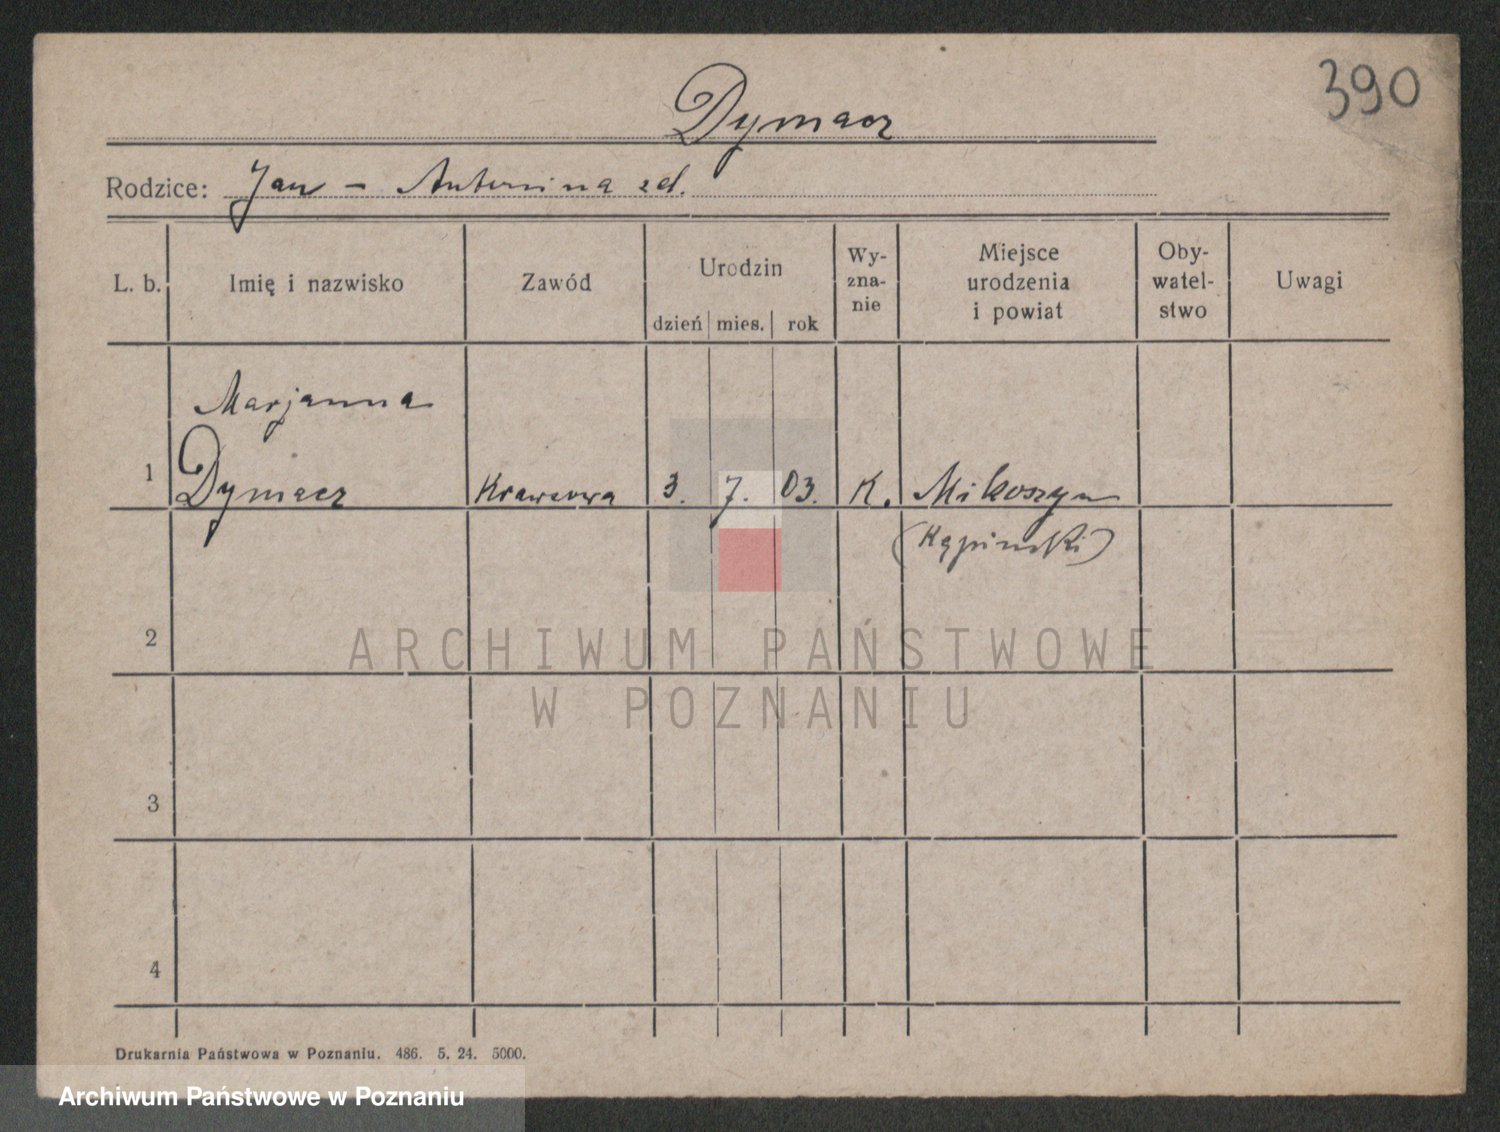 390
Dymacz
Rodzice: Jan – Antonina zd.
L. b.
Imię i nazwisko
Zawód
Urodzin
dzień mies. rok
Wy-
zna-
nie
Miejsce
urodzenia
i powiat
Oby-
watel-
stwo
Uwagi
Marjanna
1 Dymacz Krawcowa 3. 7. 03. K. Mikoszyn
(Kępiński)
2
ARCHIWUM PAŃSTWOWE
W POZNANIU
3
4
Drukarnia Państwowa w Poznaniu. 486. 5. 24. 5000.
Archiwum Państwowe w Poznaniu